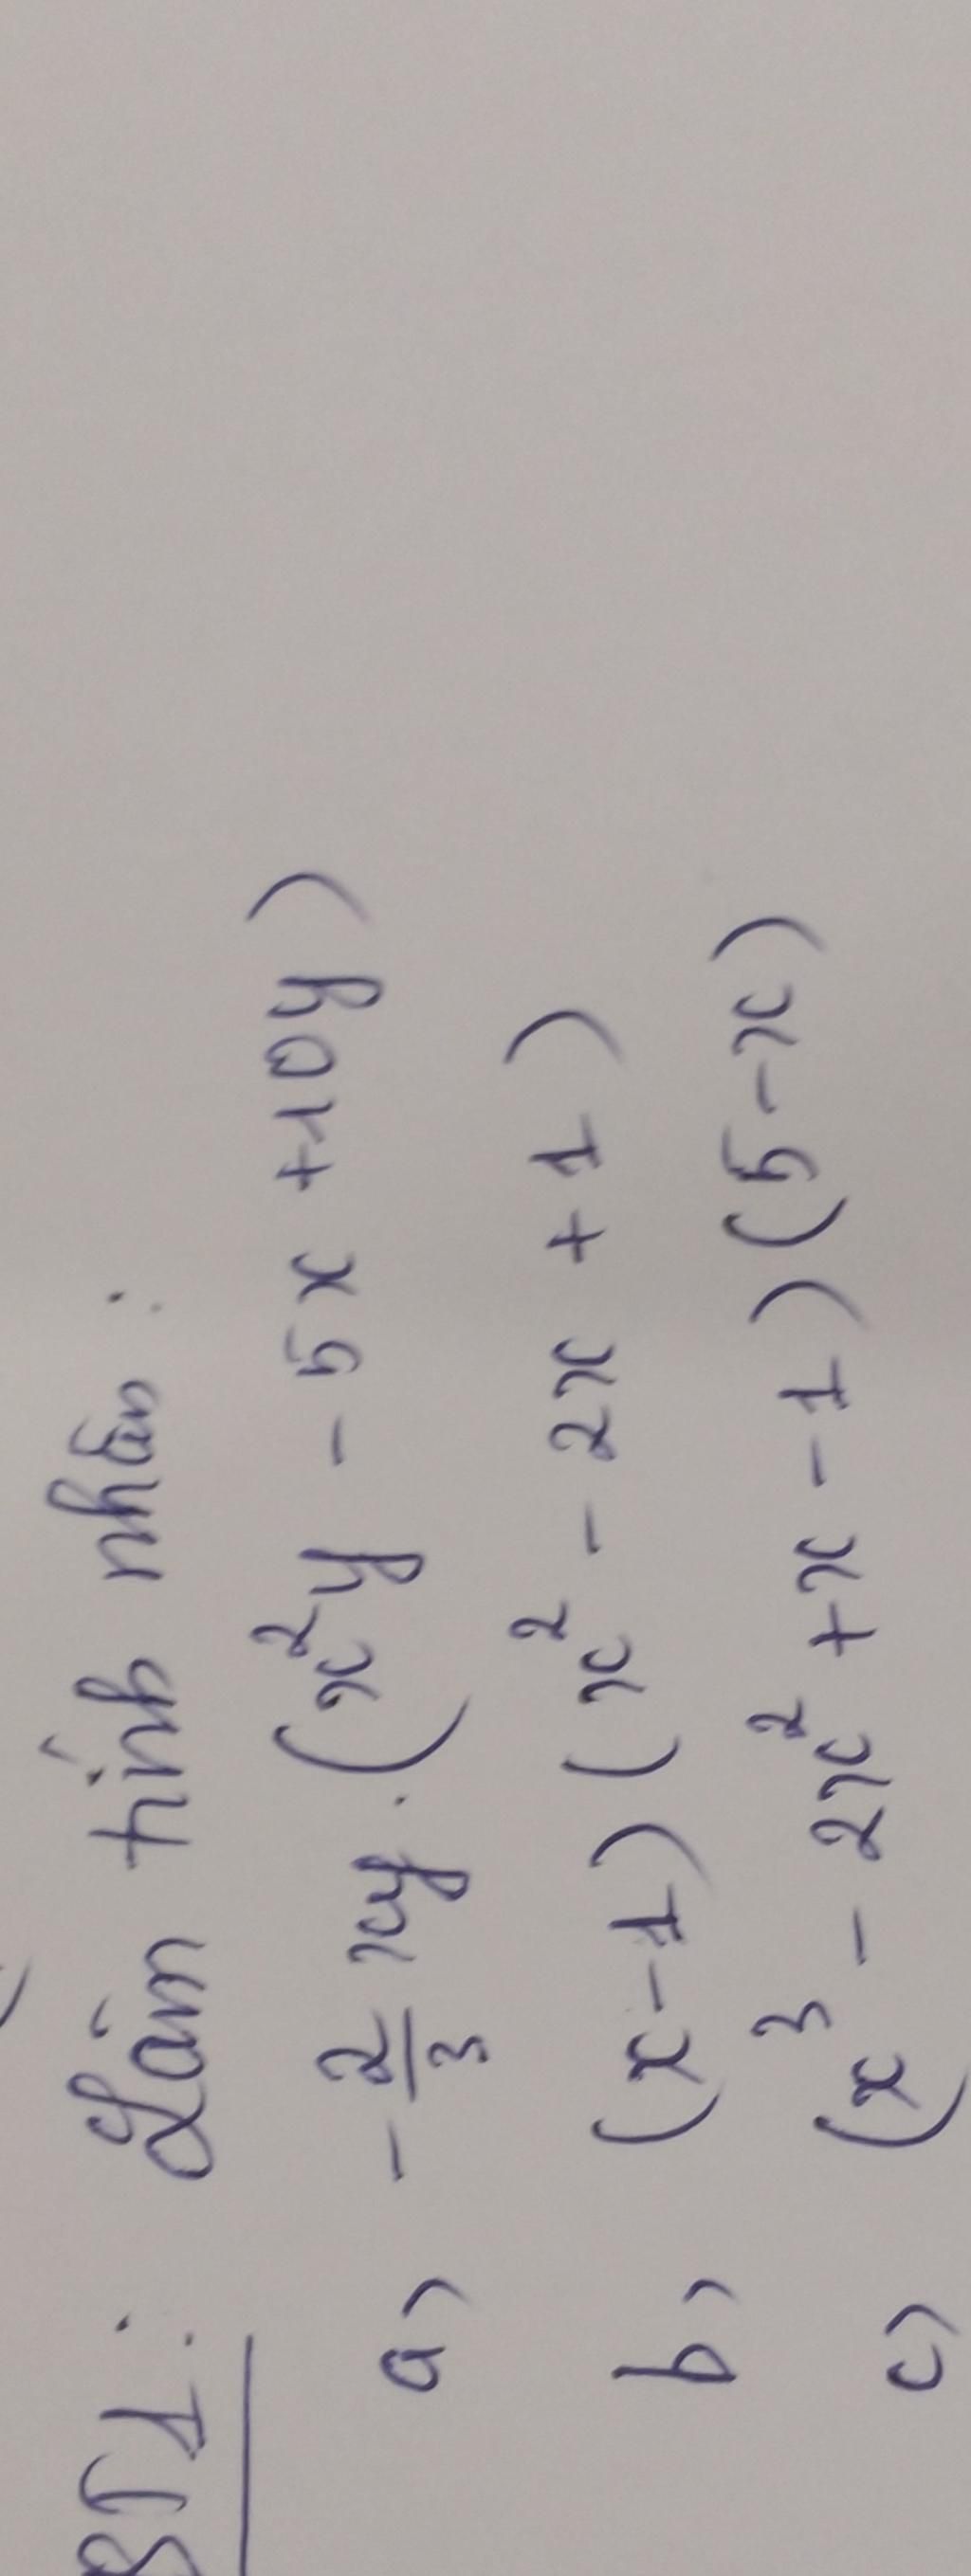 BT1: Làm tính nhân:
a) -2/3 xy.(x²y - 5x + 10y)
b) (x-1)(x² - 2x + 1)
c) (x³ - 2x² + x - 1)(5-x)